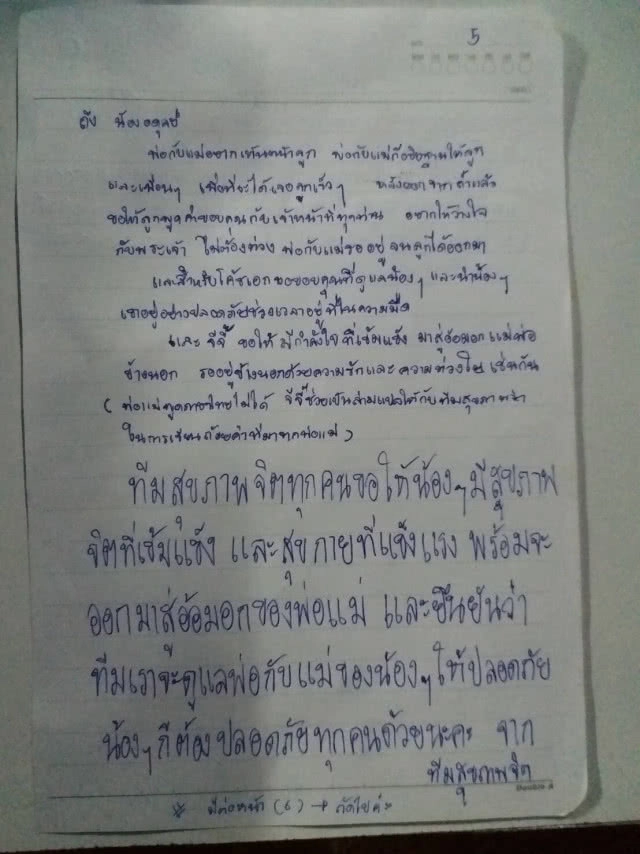 5
ถึง น้องอดุลย์
พ่อกับแม่อยากเห็นหน้าลูก พ่อกับแม่ก็อธิษฐานให้ลูก
และเพื่อนๆ เพื่อที่จะได้เจอลูกเร็วๆ หลังออกจากถ้ำแล้ว
ขอให้ลูกพูดคำขอบคุณกับเจ้าหน้าที่ทุกท่าน อยากให้วางใจ
กับพระเจ้า ไม่ต้องห่วง พ่อกับแม่รออยู่ จนลูกได้ออกมา
และสำหรับโค้ชเอก ขอขอบคุณที่ดูแลน้องๆ และนำน้องๆ
เขาอยู่อย่างปลอดภัยช่วงเวลาอยู่ที่ในความมืด
และ จีจี้ ขอให้ มีกำลังใจ ที่เข้มแข็ง มาสู่อ้อมอกแม่พ่อ
ข้างนอก รออยู่ข้างนอกด้วยความรักและความห่วงใยเช่นกัน
(พ่อแม่พูดภาษาไทยไม่ได้ จีจี้ช่วยเป็นล่ามแปลให้กับทีมสุขภาพจิต
ในการเขียนถ้อยคำที่มาจากพ่อแม่)
ทีมสุขภาพจิตทุกคนขอให้น้องๆมีสุขภาพ
จิตที่เข้มแข็ง และสุขกายที่แข็งแรง พร้อมจะ
ออกมาสู่อ้อมอกของพ่อแม่ และยืนยันว่า
ทีมเราจะดูแลพ่อกับแม่ของน้องๆให้ปลอดภัย
น้องๆก็ต้องปลอดภัยทุกคนด้วยนะคะ จาก
ทีมสุขภาพจิต
* มีต่อหน้า (6) → ถัดไปค่ะ